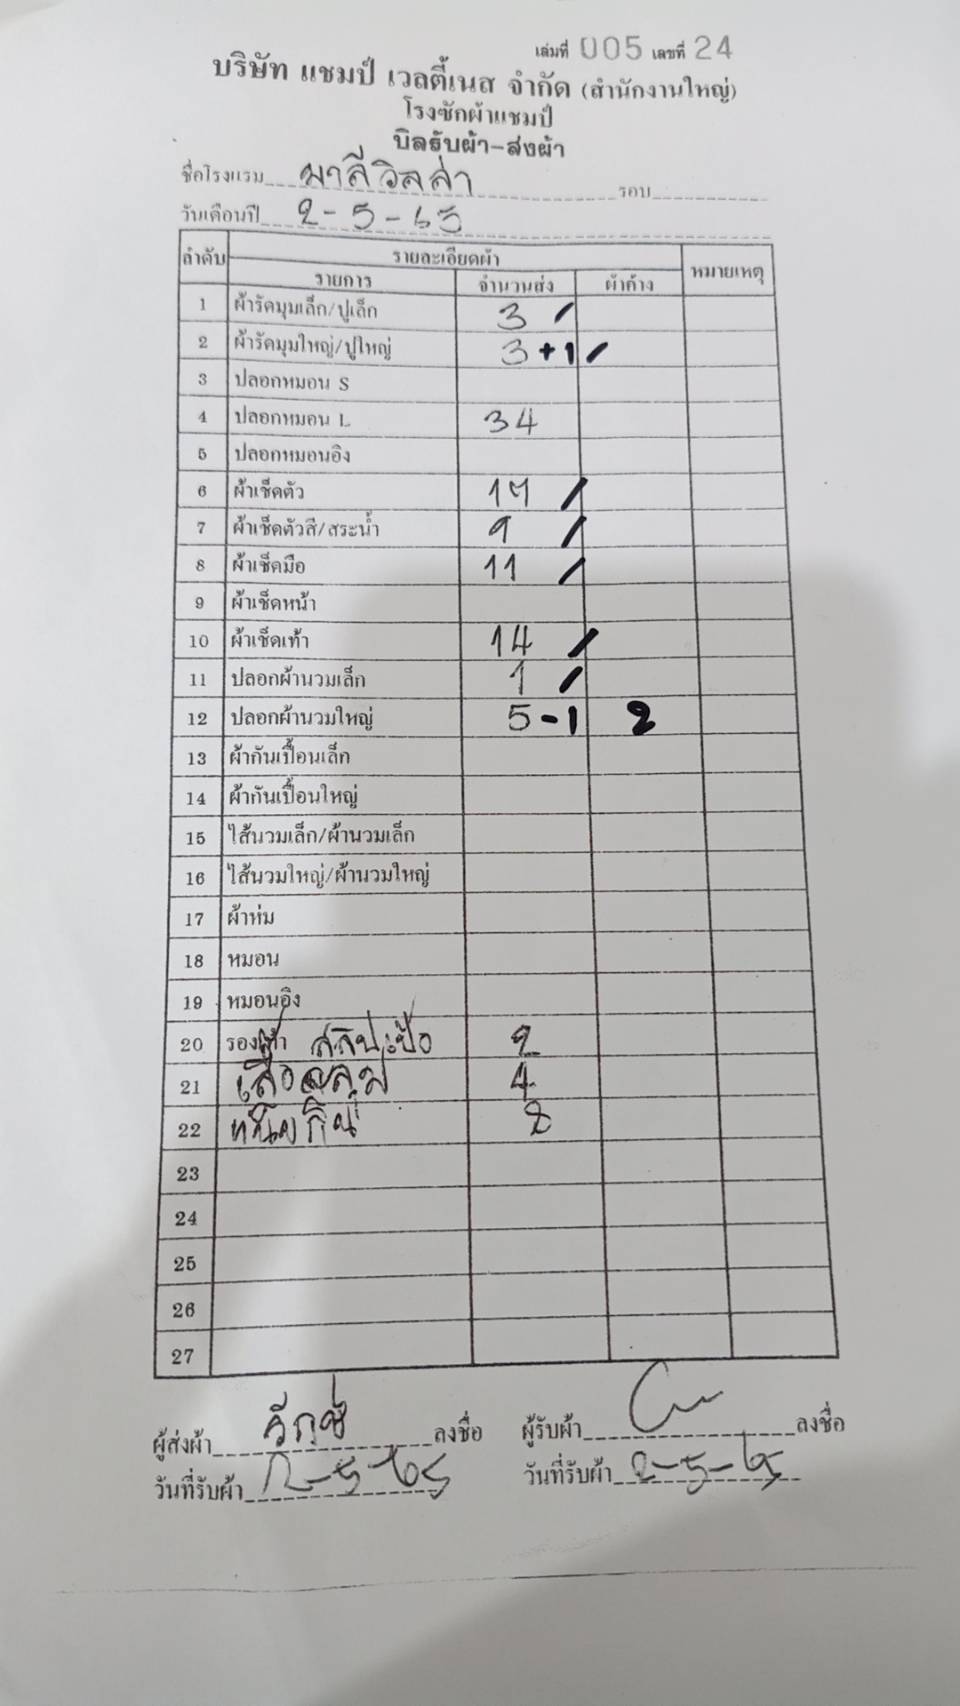 เล่มที่ 005 เลขที่ 24
บริษัท แชมป์ เวลตี้เนส จำกัด (สำนักงานใหญ่)
โรงซักผ้าแชมป์
บิลรับผ้า-ส่งผ้า
ชื่อโรงแรม มาลีวิลล่า รอบ
วันเดือนปี 2-5-65
ลำดับ รายละเอียดผ้า หมายเหตุ
รายการ จำนวนส่ง ผ้าค้าง
1 ผ้ารัดมุมเล็ก/ปูเล็ก 3 /
2 ผ้ารัดมุมใหญ่/ปูใหญ่ 3 +1 /
3 ปลอกหมอน S
4 ปลอกหมอน L 34
5 ปลอกหมอนอิง
6 ผ้าเช็ดตัว 17 /
7 ผ้าเช็ดตัวสี/สระน้ำ 9 /
8 ผ้าเช็ดมือ 11 /
9 ผ้าเช็ดหน้า
10 ผ้าเช็ดเท้า 14 /
11 ปลอกผ้านวมเล็ก 1 /
12 ปลอกผ้านวมใหญ่ 5 -1 2
13 ผ้ากันเปื้อนเล็ก
14 ผ้ากันเปื้อนใหญ่
15 ไส้นวมเล็ก/ผ้านวมเล็ก
16 ไส้นวมใหญ่/ผ้านวมใหญ่
17 ผ้าห่ม
18 หมอน
19 หมอนอิง
20 รองเท้า 2
21 เสื้อคลุม 4
22 8
23
24
25
26
27
ผู้ส่งผ้า ลงชื่อ ผู้รับผ้า ลงชื่อ
วันที่รับผ้า 2-5-65 วันที่รับผ้า 2-5-65